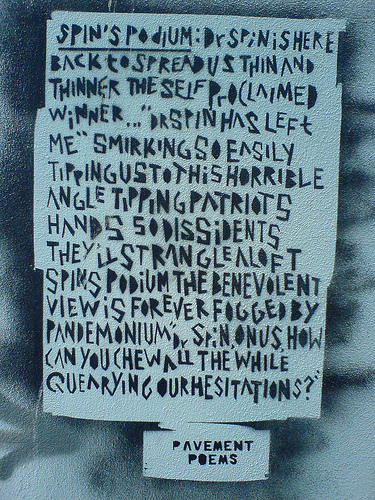 SPIN'S PODIUM: Dr SPiN iS HERE
BACK to SPREAD US THIN AND
THINNER THE SELF PrOCLAIMED
WiNNER... "Dr SPIN HAS LEFt
ME" SMIRKING SO EASILY
TIPPING US TO THIS HORRIBLE
ANGLE TIPPING PATRIOTS
HANDS SO DISSIDENTS
THEY'LL STRANGLE ALOFT
SPINS PODIUM THE BENEVOLENT
VIEW iS FOREVER FOGGED BY
PANDEMONIUM "Dr SPiN, ON US, HOW
CAN YOU CHEW ALL THE WHILE
QUEARYING OUR HESITATIONS?"
PAVEMENT
POEMS